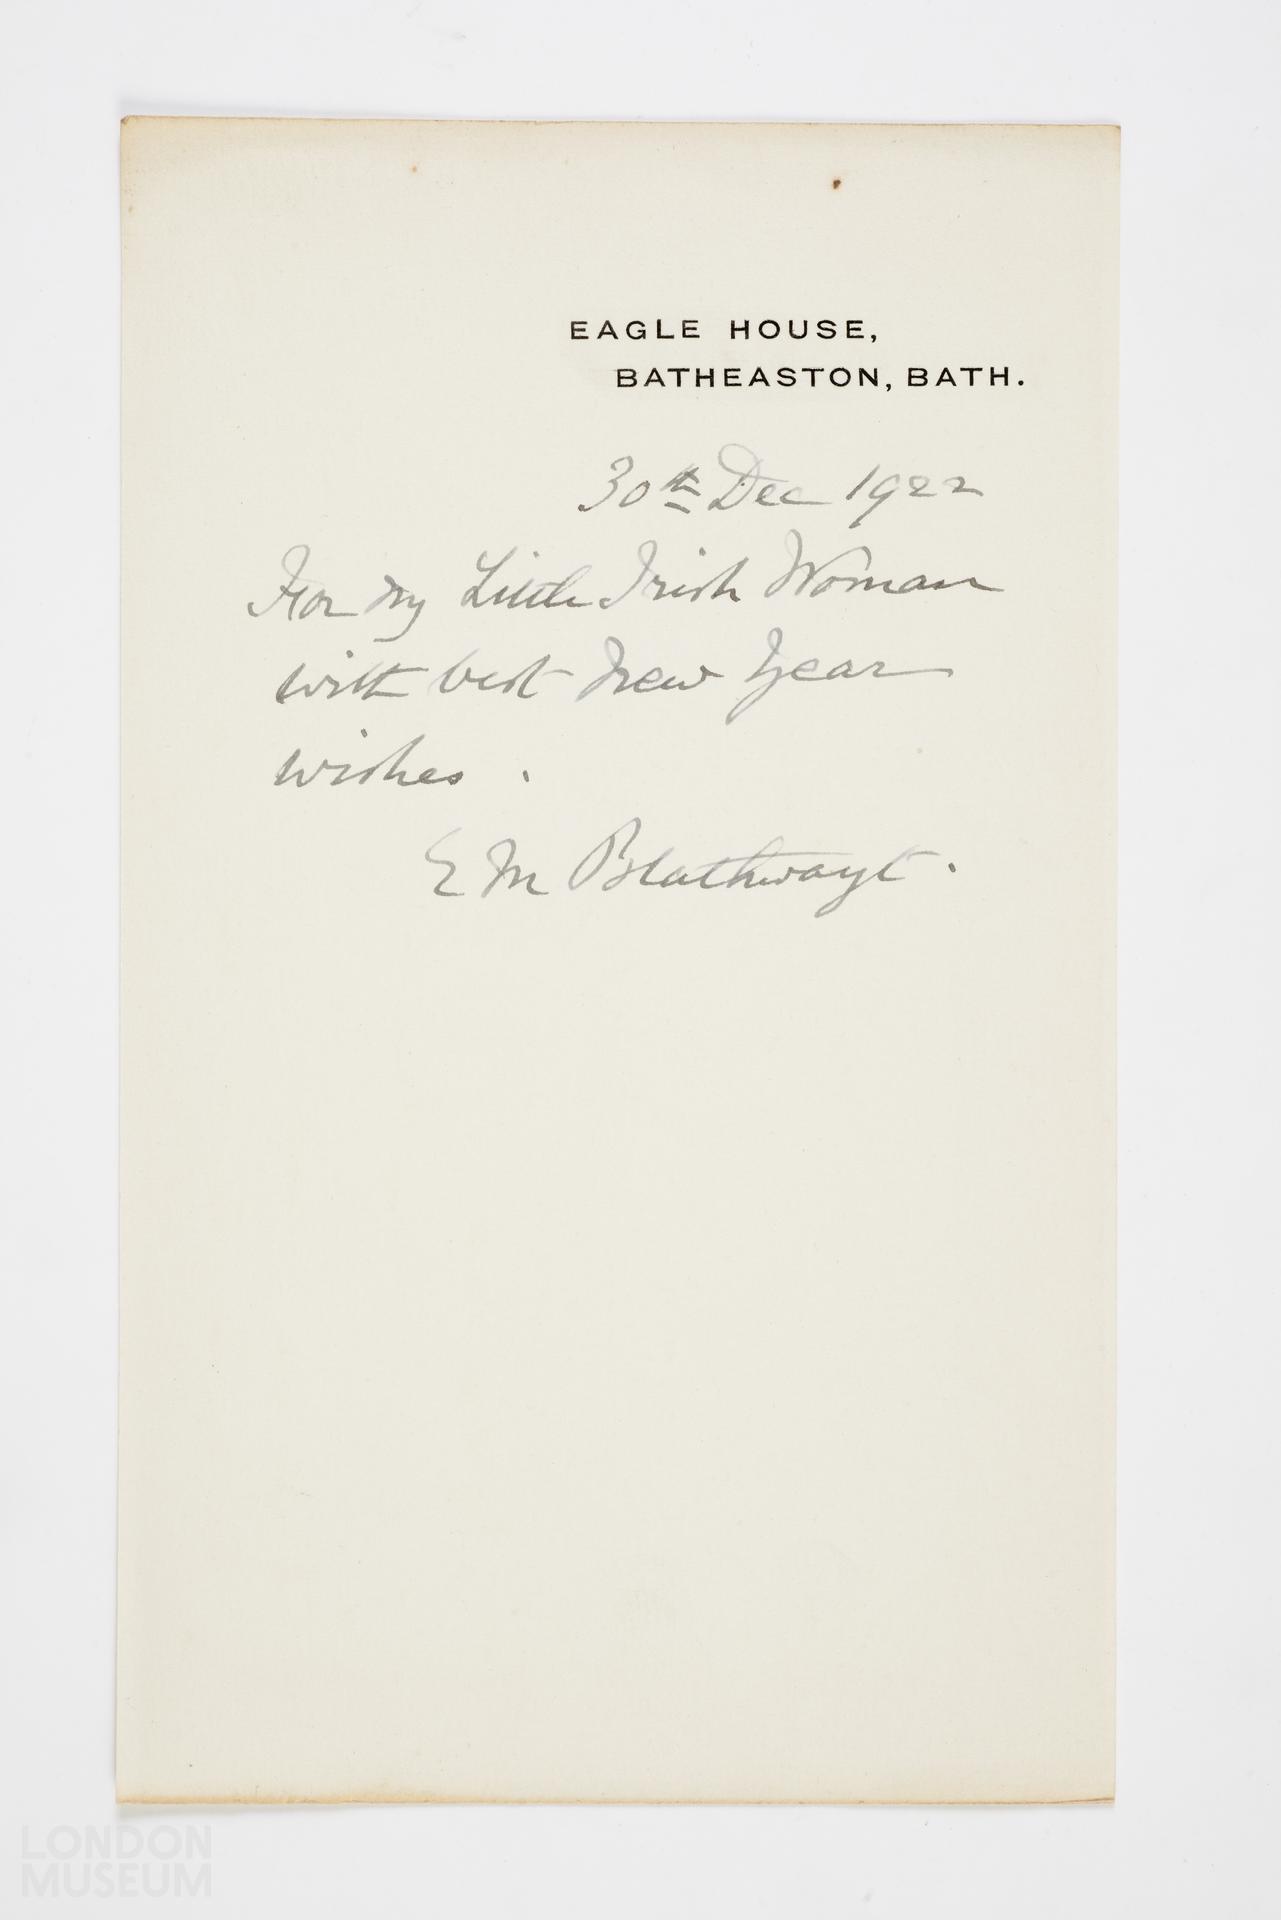 EAGLE HOUSE,
BATHEASTON, BATH.
30th Dec 1922
For my Little Irish Woman
with best New Year
wishes.
E M Blathwayt.
LONDON
MUSEUM